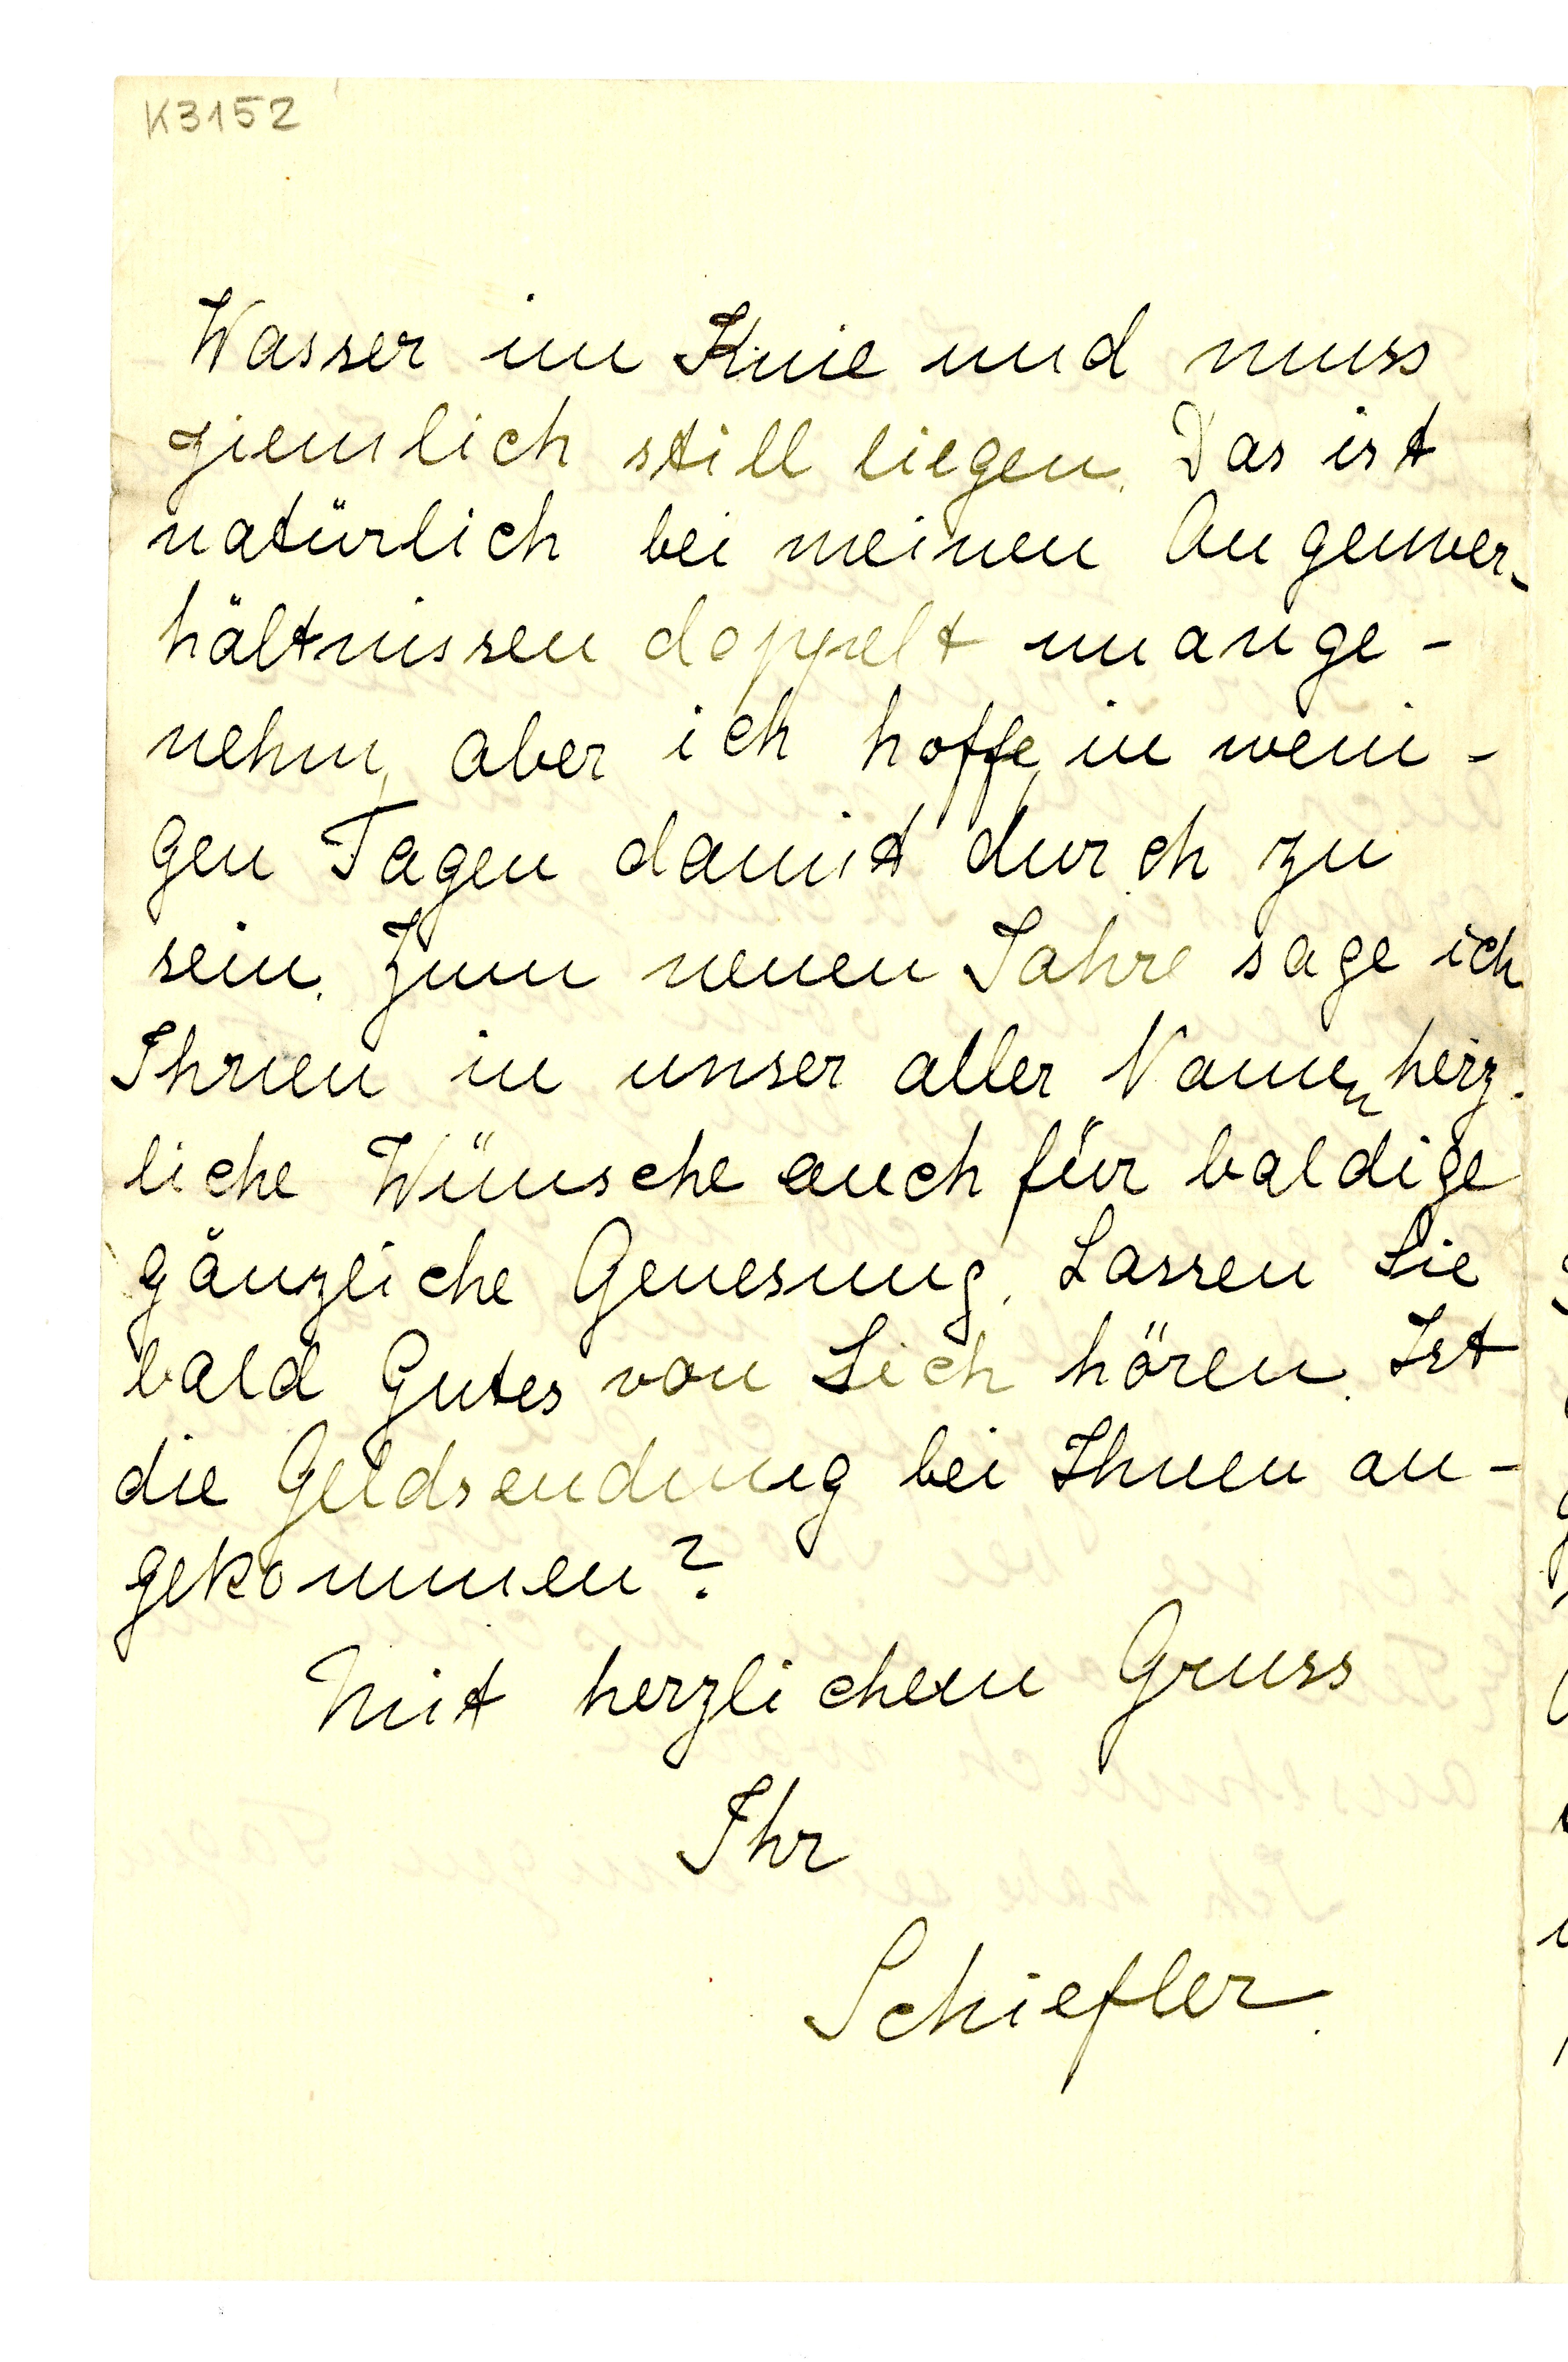 K3152
Wasser im Knie und muss
ziemlich still liegen. Das ist
natürlich bei meinen Augenver-
hältnissen doppelt unange-
nehm, aber ich hoffe, in weni-
gen Tagen damit durch zu
sein. Zum neuen Jahre sage ich
Ihnen in unser aller Namen herz-
liche Wünsche auch für baldige
gänzliche Genesung. Lassen Sie
bald Gutes von Sich hören. Ist
die Geldsendung bei Ihnen an-
gekommen?
Mit herzlichem Gruss
Ihr
Schiefler.